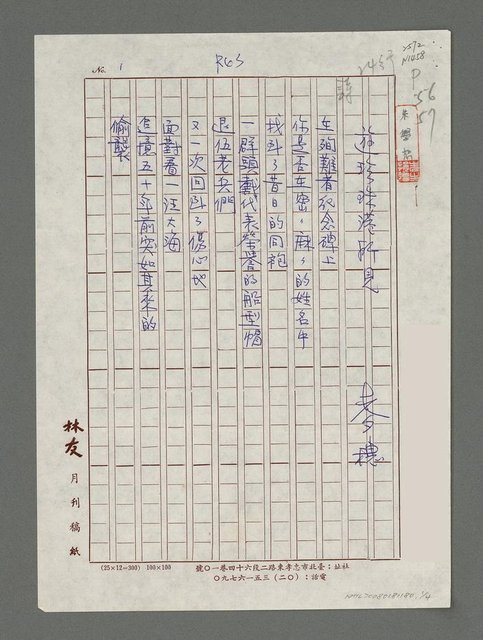 No. 1
R65
2592
N1458
D
56
57
詩
遊珍珠港所見
麥穗
在殉難者紀念碑上
你是否在密ㄑ麻ㄑ的姓名中
找到了昔日的同袍
一群頭戴代表榮譽的船型帽
退伍老兵們
又一次回到了傷心地
面對着一汪大海
追憶五十年前突如其來的
偷襲
林友
月刊稿紙
(25×12=300) 100×100
社址：臺北市忠孝東路二段六十四巷一〇號
電話：(〇二)三五一六七九〇
NMTL20080181180, 1/4